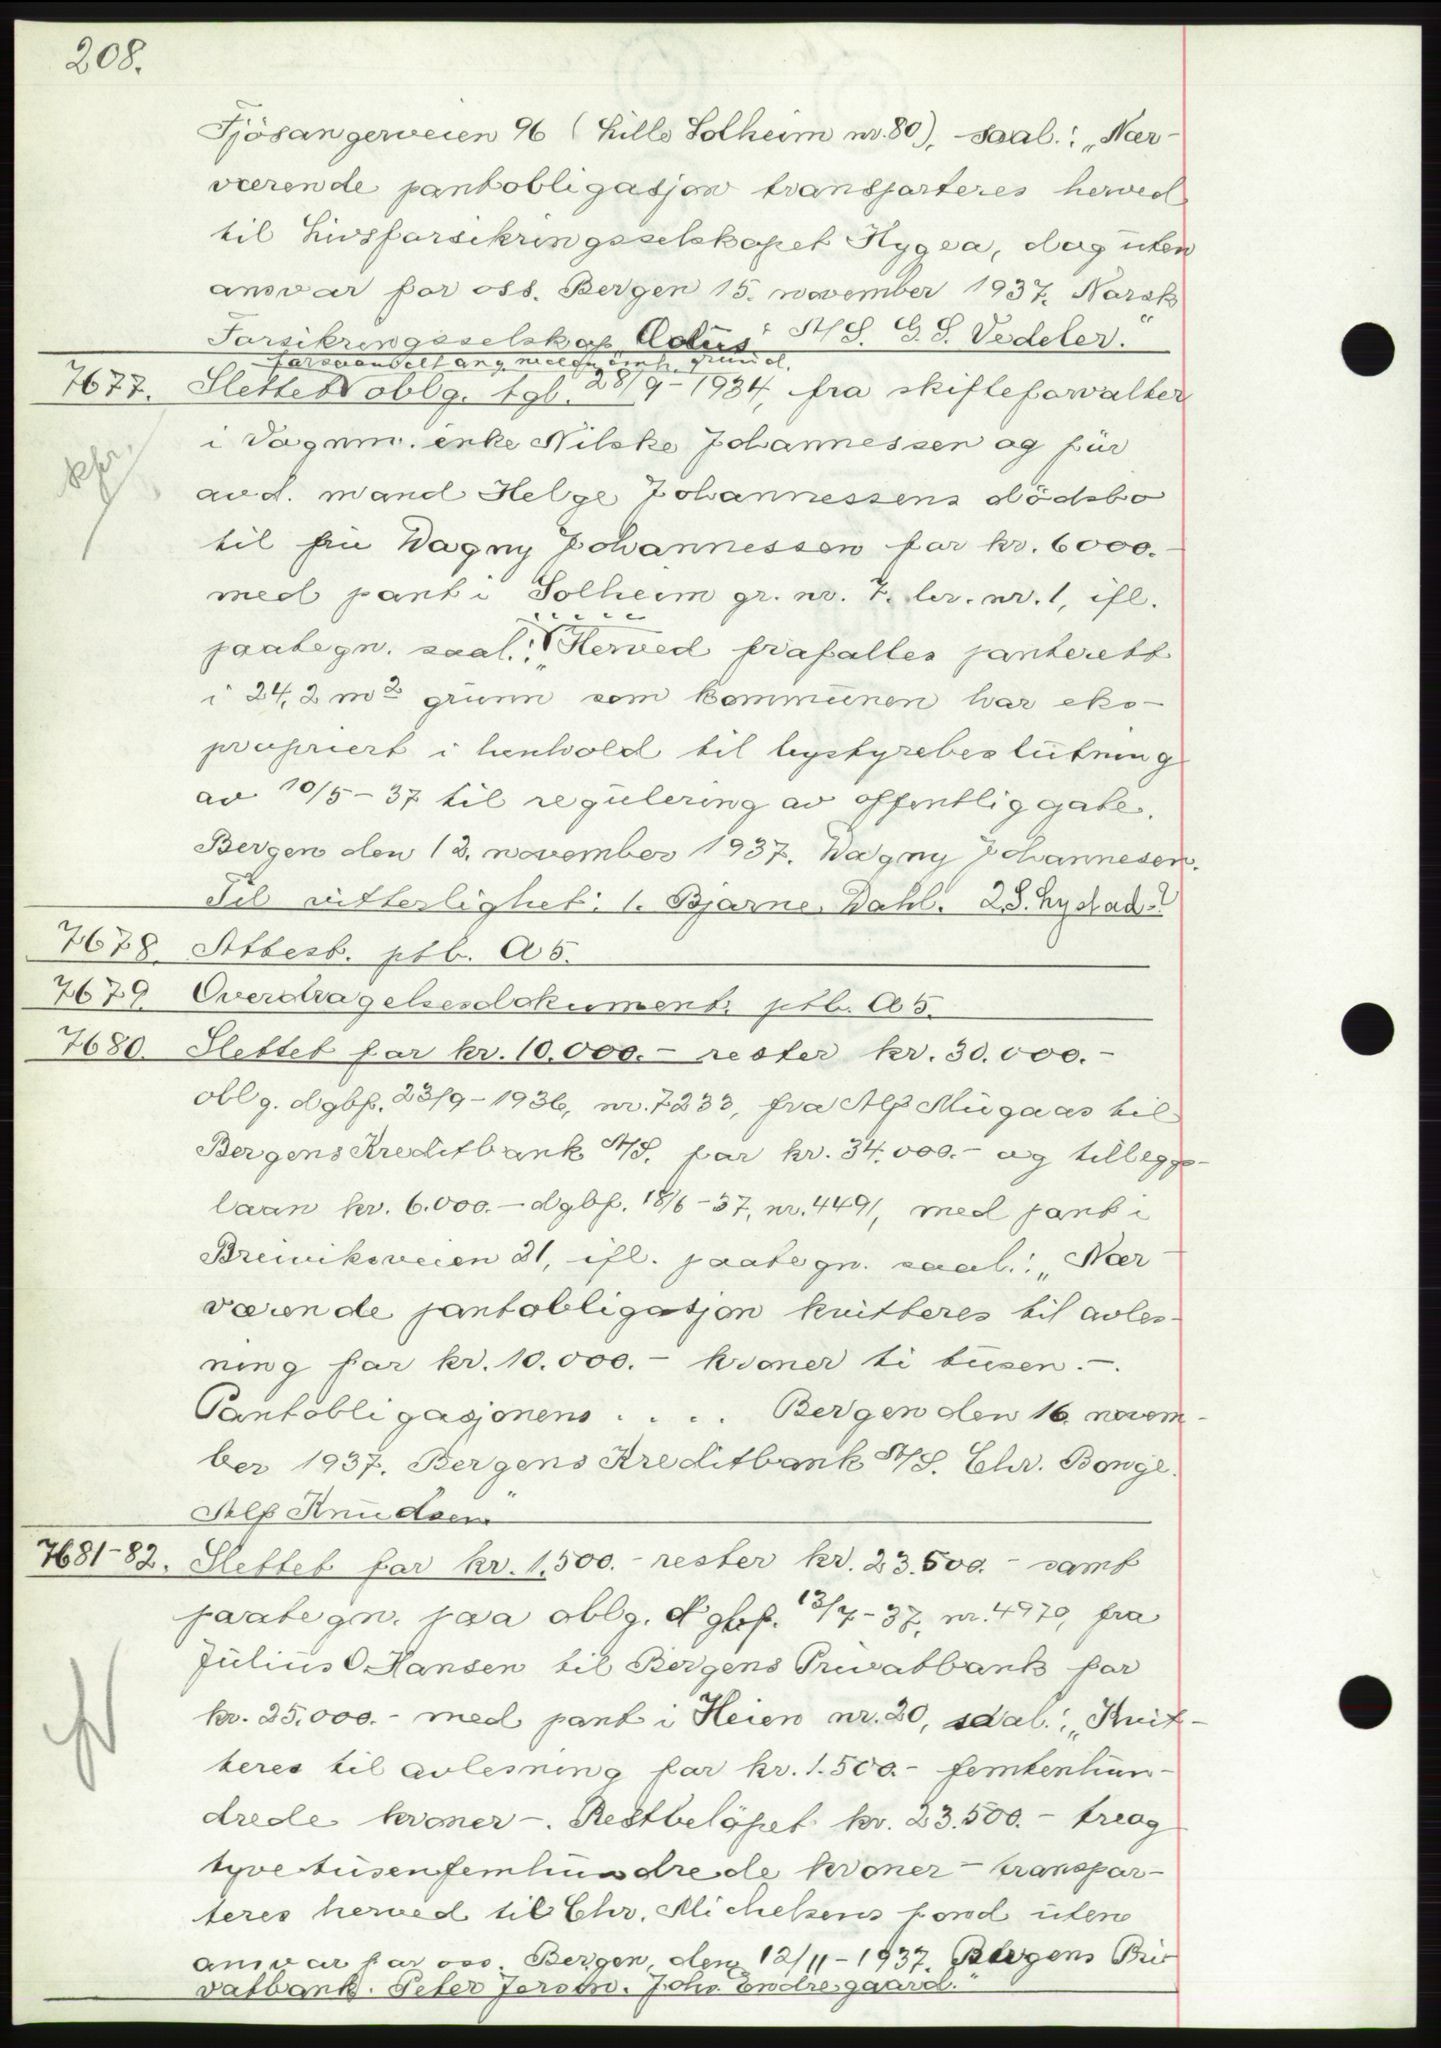 208.
Fjösangerveien 96 (Lille Solheim nr. 80), saal.: „Nær-
værende pantobligasjon transporteres herved
til Livsforsikringsselskapet Hygea, dog uten
ansvar for oss. Bergen 15. november 1937. Norsk
Forsikringsselskap Aolus A/S. G. S. Vedeler."
7677. Slettet oblg. tgl. 28/9-1934, fra skifteforvalter
i Vognm. enke Nilske Johannessen og før
avd. mand Helge Johannessens dödsbo
til fru Wagny Johannessen for kr. 6000.-
med pant i Solheim gr. nr. 7. br. nr. 1, ifl.
kfr.
paategn. saal.: „Herved frafalles panterett
i 24,2 m2 grunn som kommunen har eks-
propriert i henhold til bystyrebeslutning
av 10/5-37 til regulering av offentlig gate.
Bergen den 12. november 1937. Wagny Johannesen.
Til vitterlighet: 1. Bjarne Dahl. 2 S. Lystad."
7678. Attest. ptb. A 5.
7679. Overdragelsesdokument. ptb. A 5.
7680. Slettet for kr. 10.000.- rester kr. 30.000.-
oblg. dgbf. 23/9-1936, nr. 7233, fra Alf Mugaas til
Bergens Kreditbank A/S. for kr. 34.000.- og tilleggs-
laan kr. 6.000.- dgbf. 18/6-37, nr. 4491, med pant i
Breiviksveien 21, ifl. paategn. saal.: „Nær-
værende pantobligasjon kvitteres til avles-
ning for kr. 10.000.- kroner ti tusen.-.
Pantobligasjonens . . . . Bergen den 16. novem-
ber 1937. Bergens Kreditbank A/S. Chr. Bonge.
Alf Knudsen"
7681-82. Slettet for kr. 1.500.- rester kr. 23.500.- samt
paategn. paa oblg. dgbf. 13/7-37, nr. 4970, fra
Julius O. Hansen til Bergens Privatbank for
kr. 25.000.- med pant i Heien nr. 20, saal.: „Kvit-
teres til avlesning for kr. 1.500.- femtenhun-
drede kroner-. Restbelöpet kr. 23.500.- treog
tyvetusenfemhundrede kroner - transpor-
teres herved til Chr. Michelsens fond uten
ansvar for oss. Bergen, den 12/11-1937. Bergens Pri-
vatbank. Peter Joh. Endresgaard."